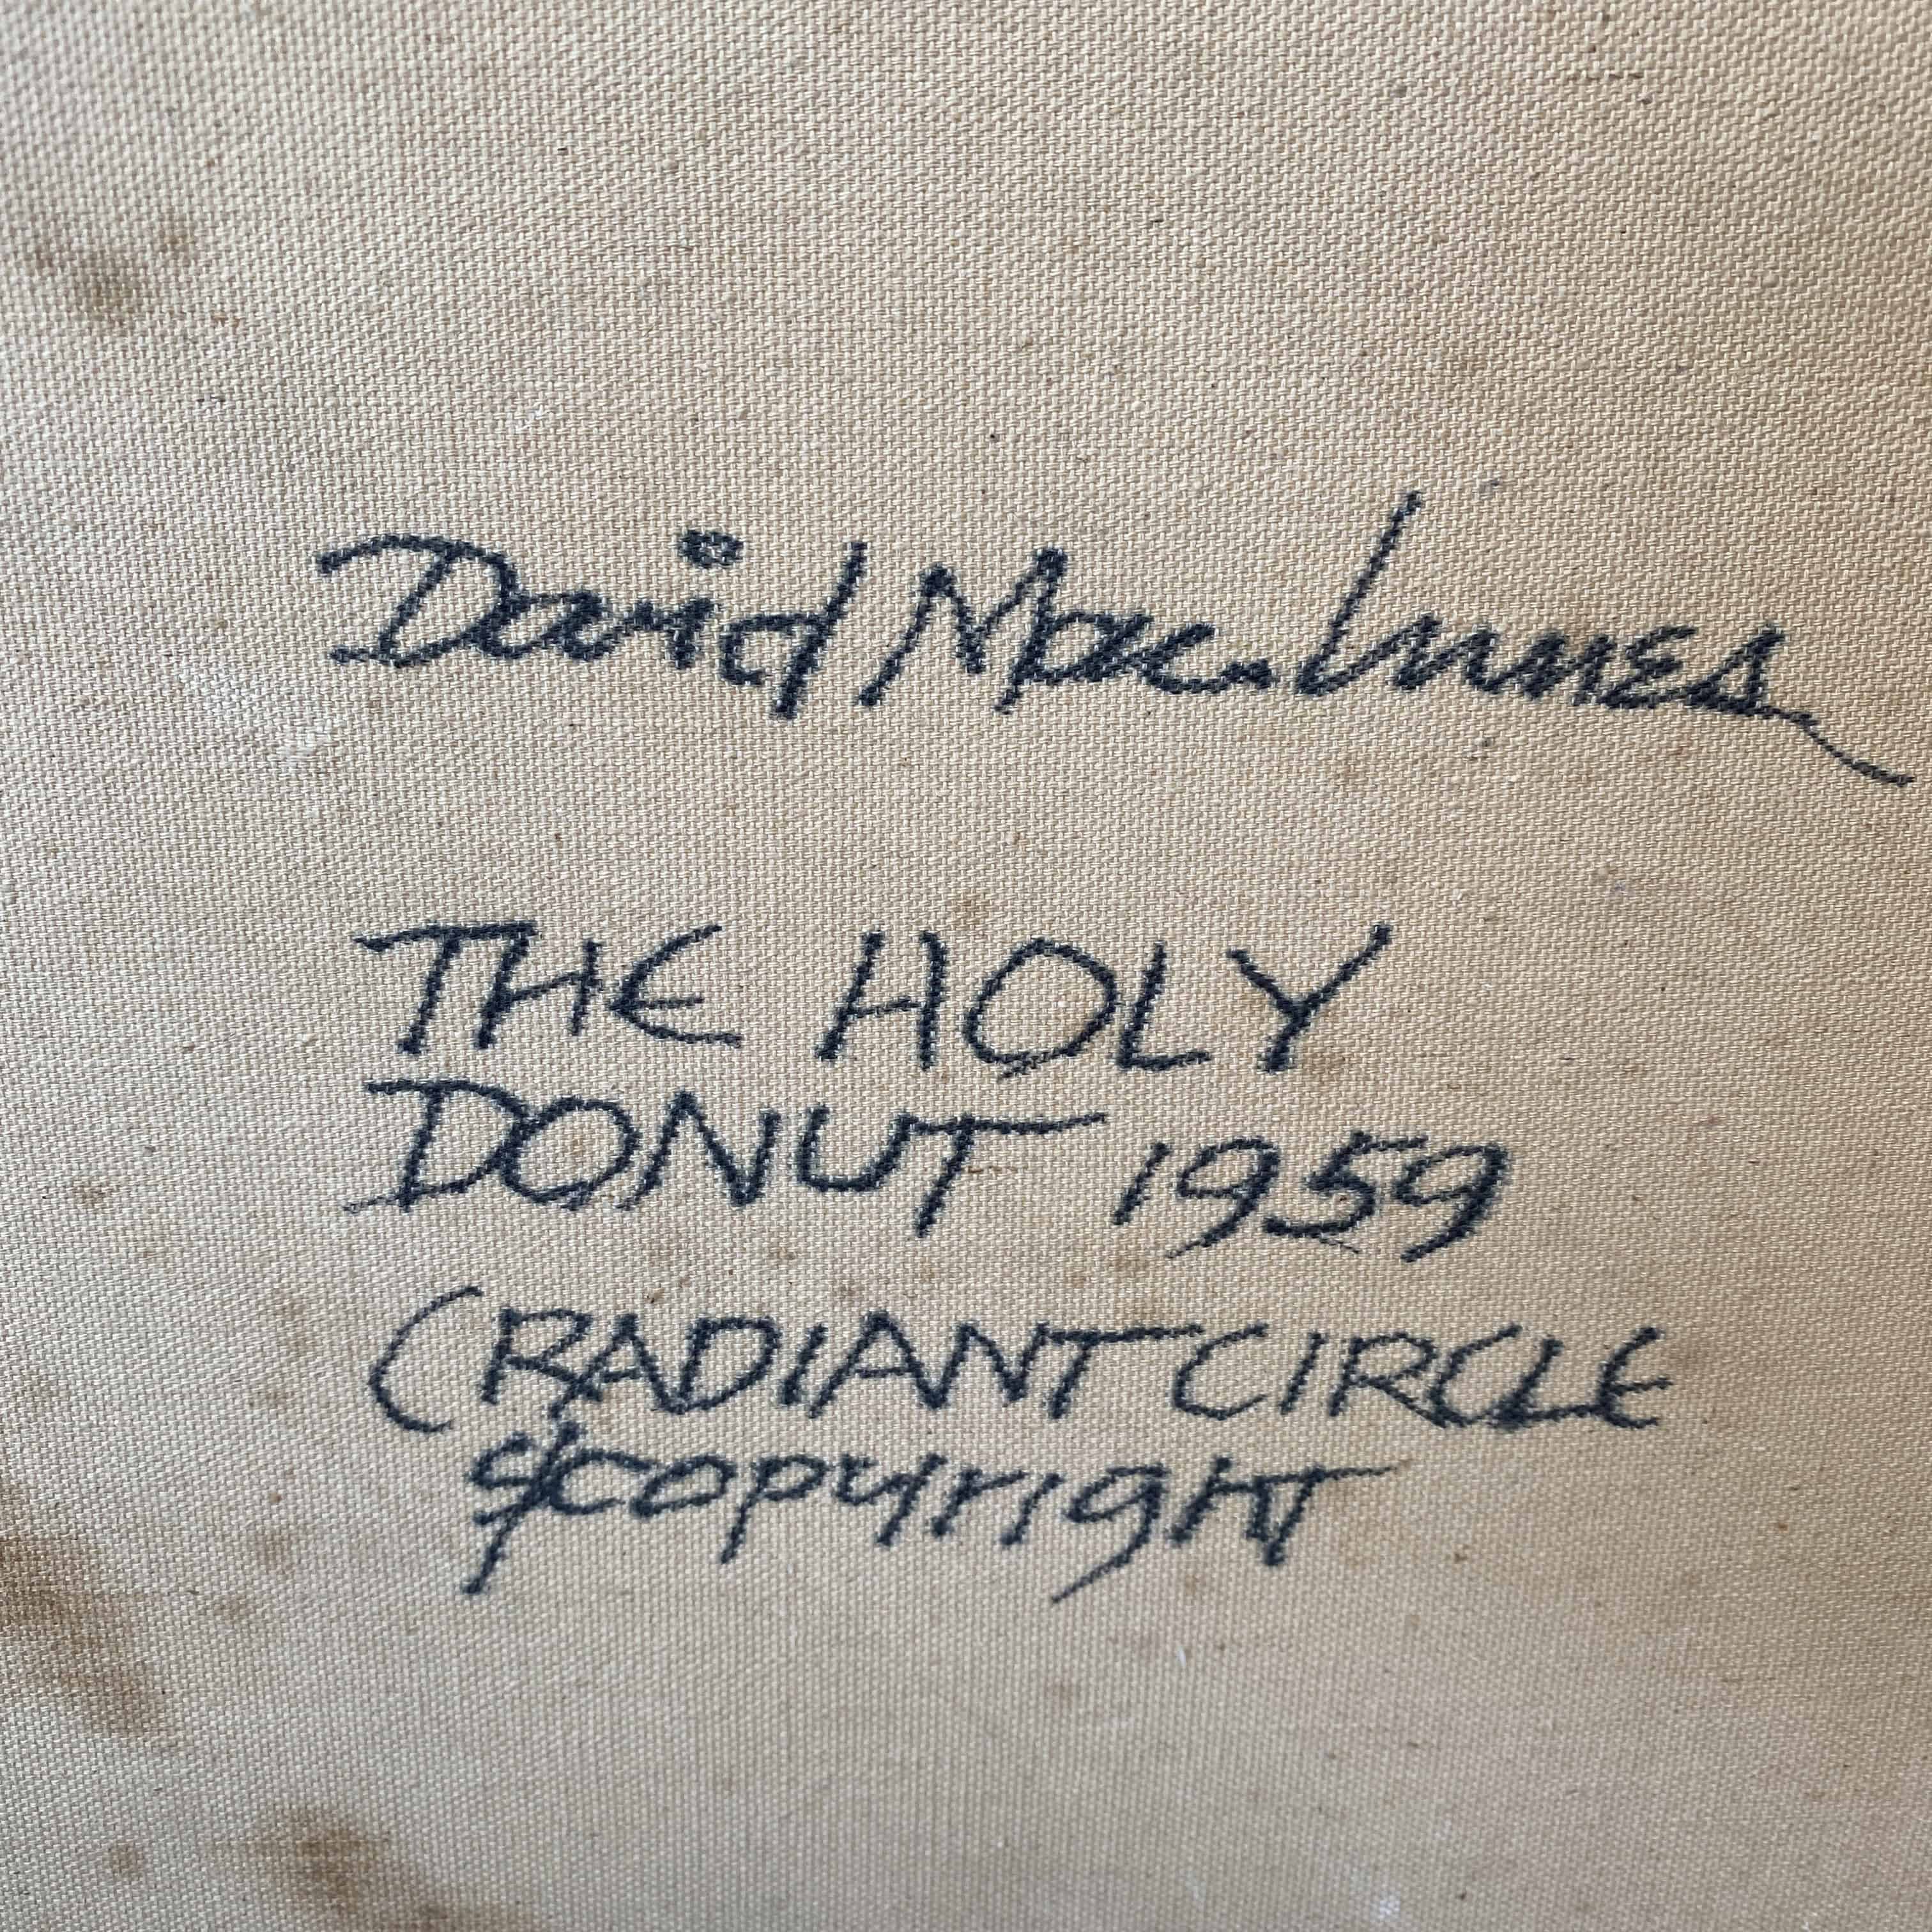 David MacInnes
THE HOLY
DONUT 1959
(RADIANT CIRCLE
copyright